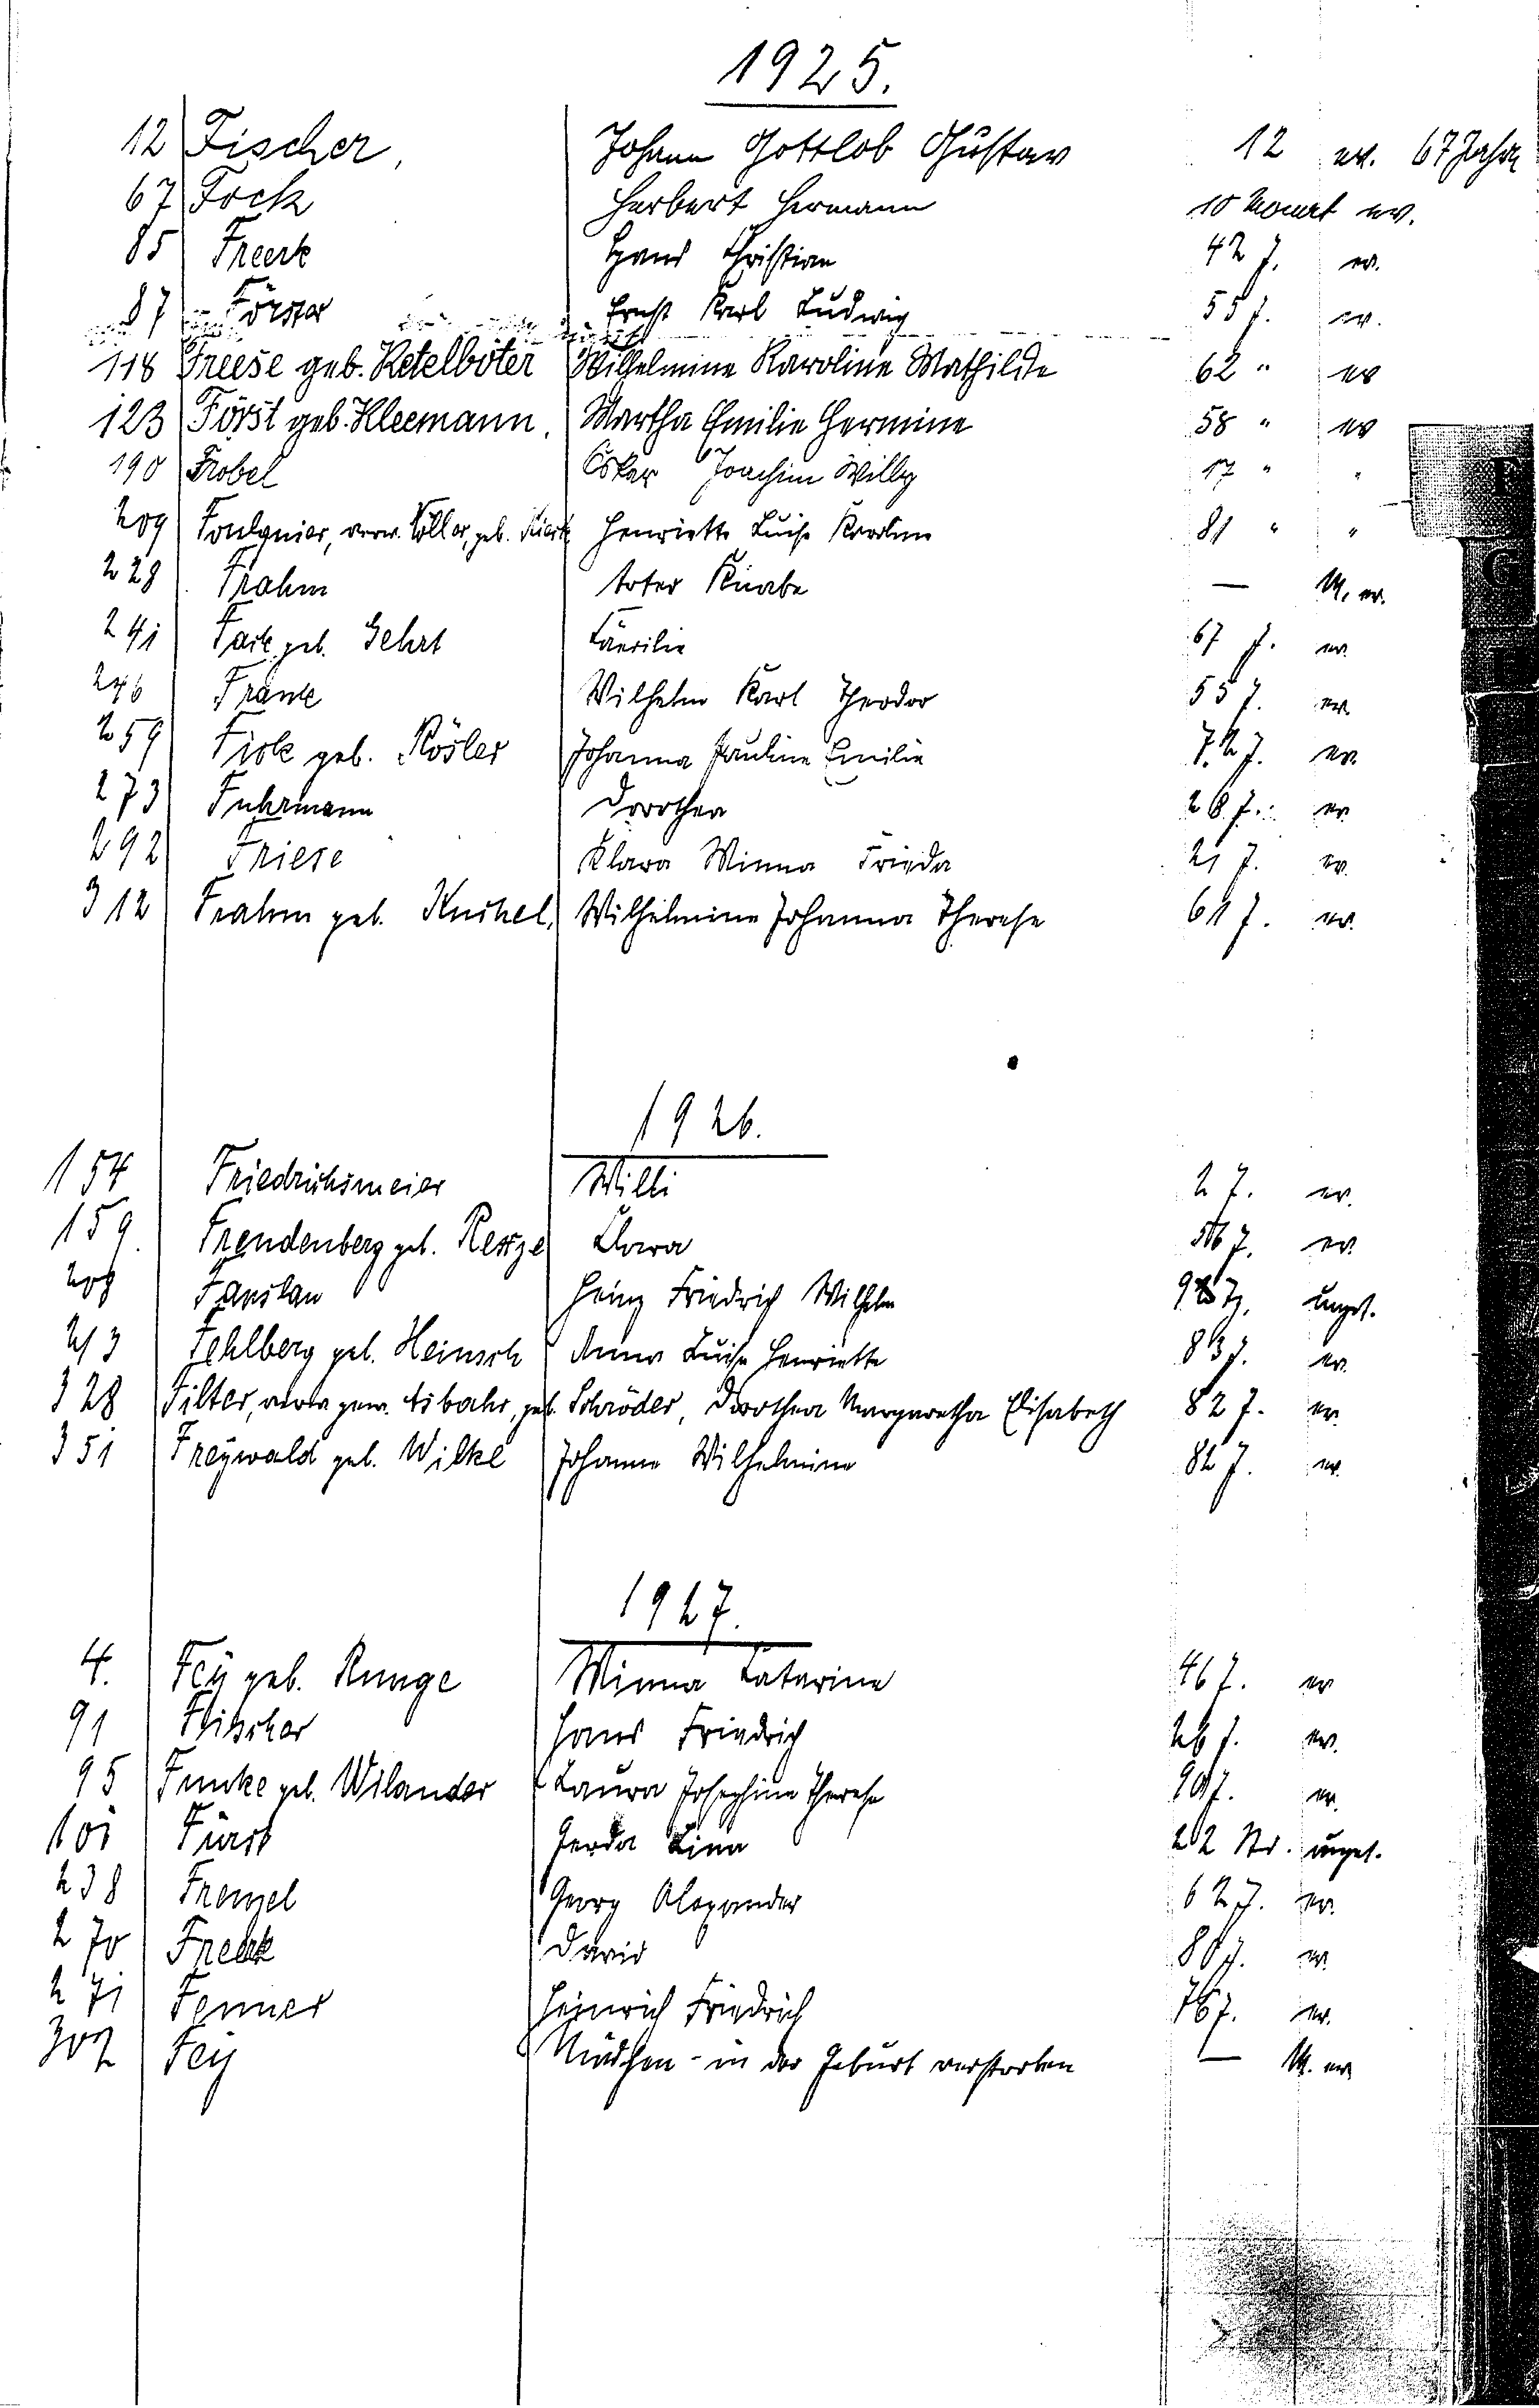 1925.
12 Fischer, Johann Gottlob Gustav 12 ev. 67 Jahre
67 Fock Herbert Hermann 10 Monat ev.
85 Freerk Hans Christian 42 J. ev.
87 Förster Ernst Karl Ludwig 55 J. ev.
118 Freese geb. Ketelböter Wilhelmine Karoline Mathilde 62 " ev
123 Först geb. Kleemann. Martha Emilie Hermine 58 " ev
190 Frobel Oskar Joachim Willy 17 " "
209 verw. geb. Henriette Luise 81 " "
228 Frahm toter Knabe — ev.
241 geb. Gehrt 67 J. ev.
246 Frank Wilhelm Karl Theodor 55 J. ev.
259 Fick geb. Rösler Johanna Pauline Emilie 72 J. ev.
273 Fuhrmann Dorothea 28 J. ev.
292 Friese Klara Minna Frieda 21 J. ev.
312 Frahm geb. Wilhelmine Johanna Therese 61 J. ev.
1926.
154 Friedrichsmeier Willi 2 J. ev.
159. geb. Clara J. ev.
208 Fanslau Heinz Friedrich Wilhelm unget.
213 Fehlberg geb. Heinsch Anna Luise Henriette 83 J. ev.
328 Filter, geb. Schröder, Dorothea Margaretha Elisabeth 82 J. ev.
351 Freywald geb. Wilke Johanna Wilhelmine 82 J. ev.
1927.
4. Fey geb. Runge Minna Catarine 46 J. ev
91 Hans Friedrich 26 J. ev.
95 Funke geb. Wilander Laura Josephine Therese J. ev.
101 Fürst Gerda Lina 22 Std. unget.
238 Frenzel Georg Alexander 62 J. ev.
270 Freerk David J. ev.
271 Fenner Heinrich Friedrich 76 J. ev.
307 Fey Mädchen - in der Geburt verstorben — ev